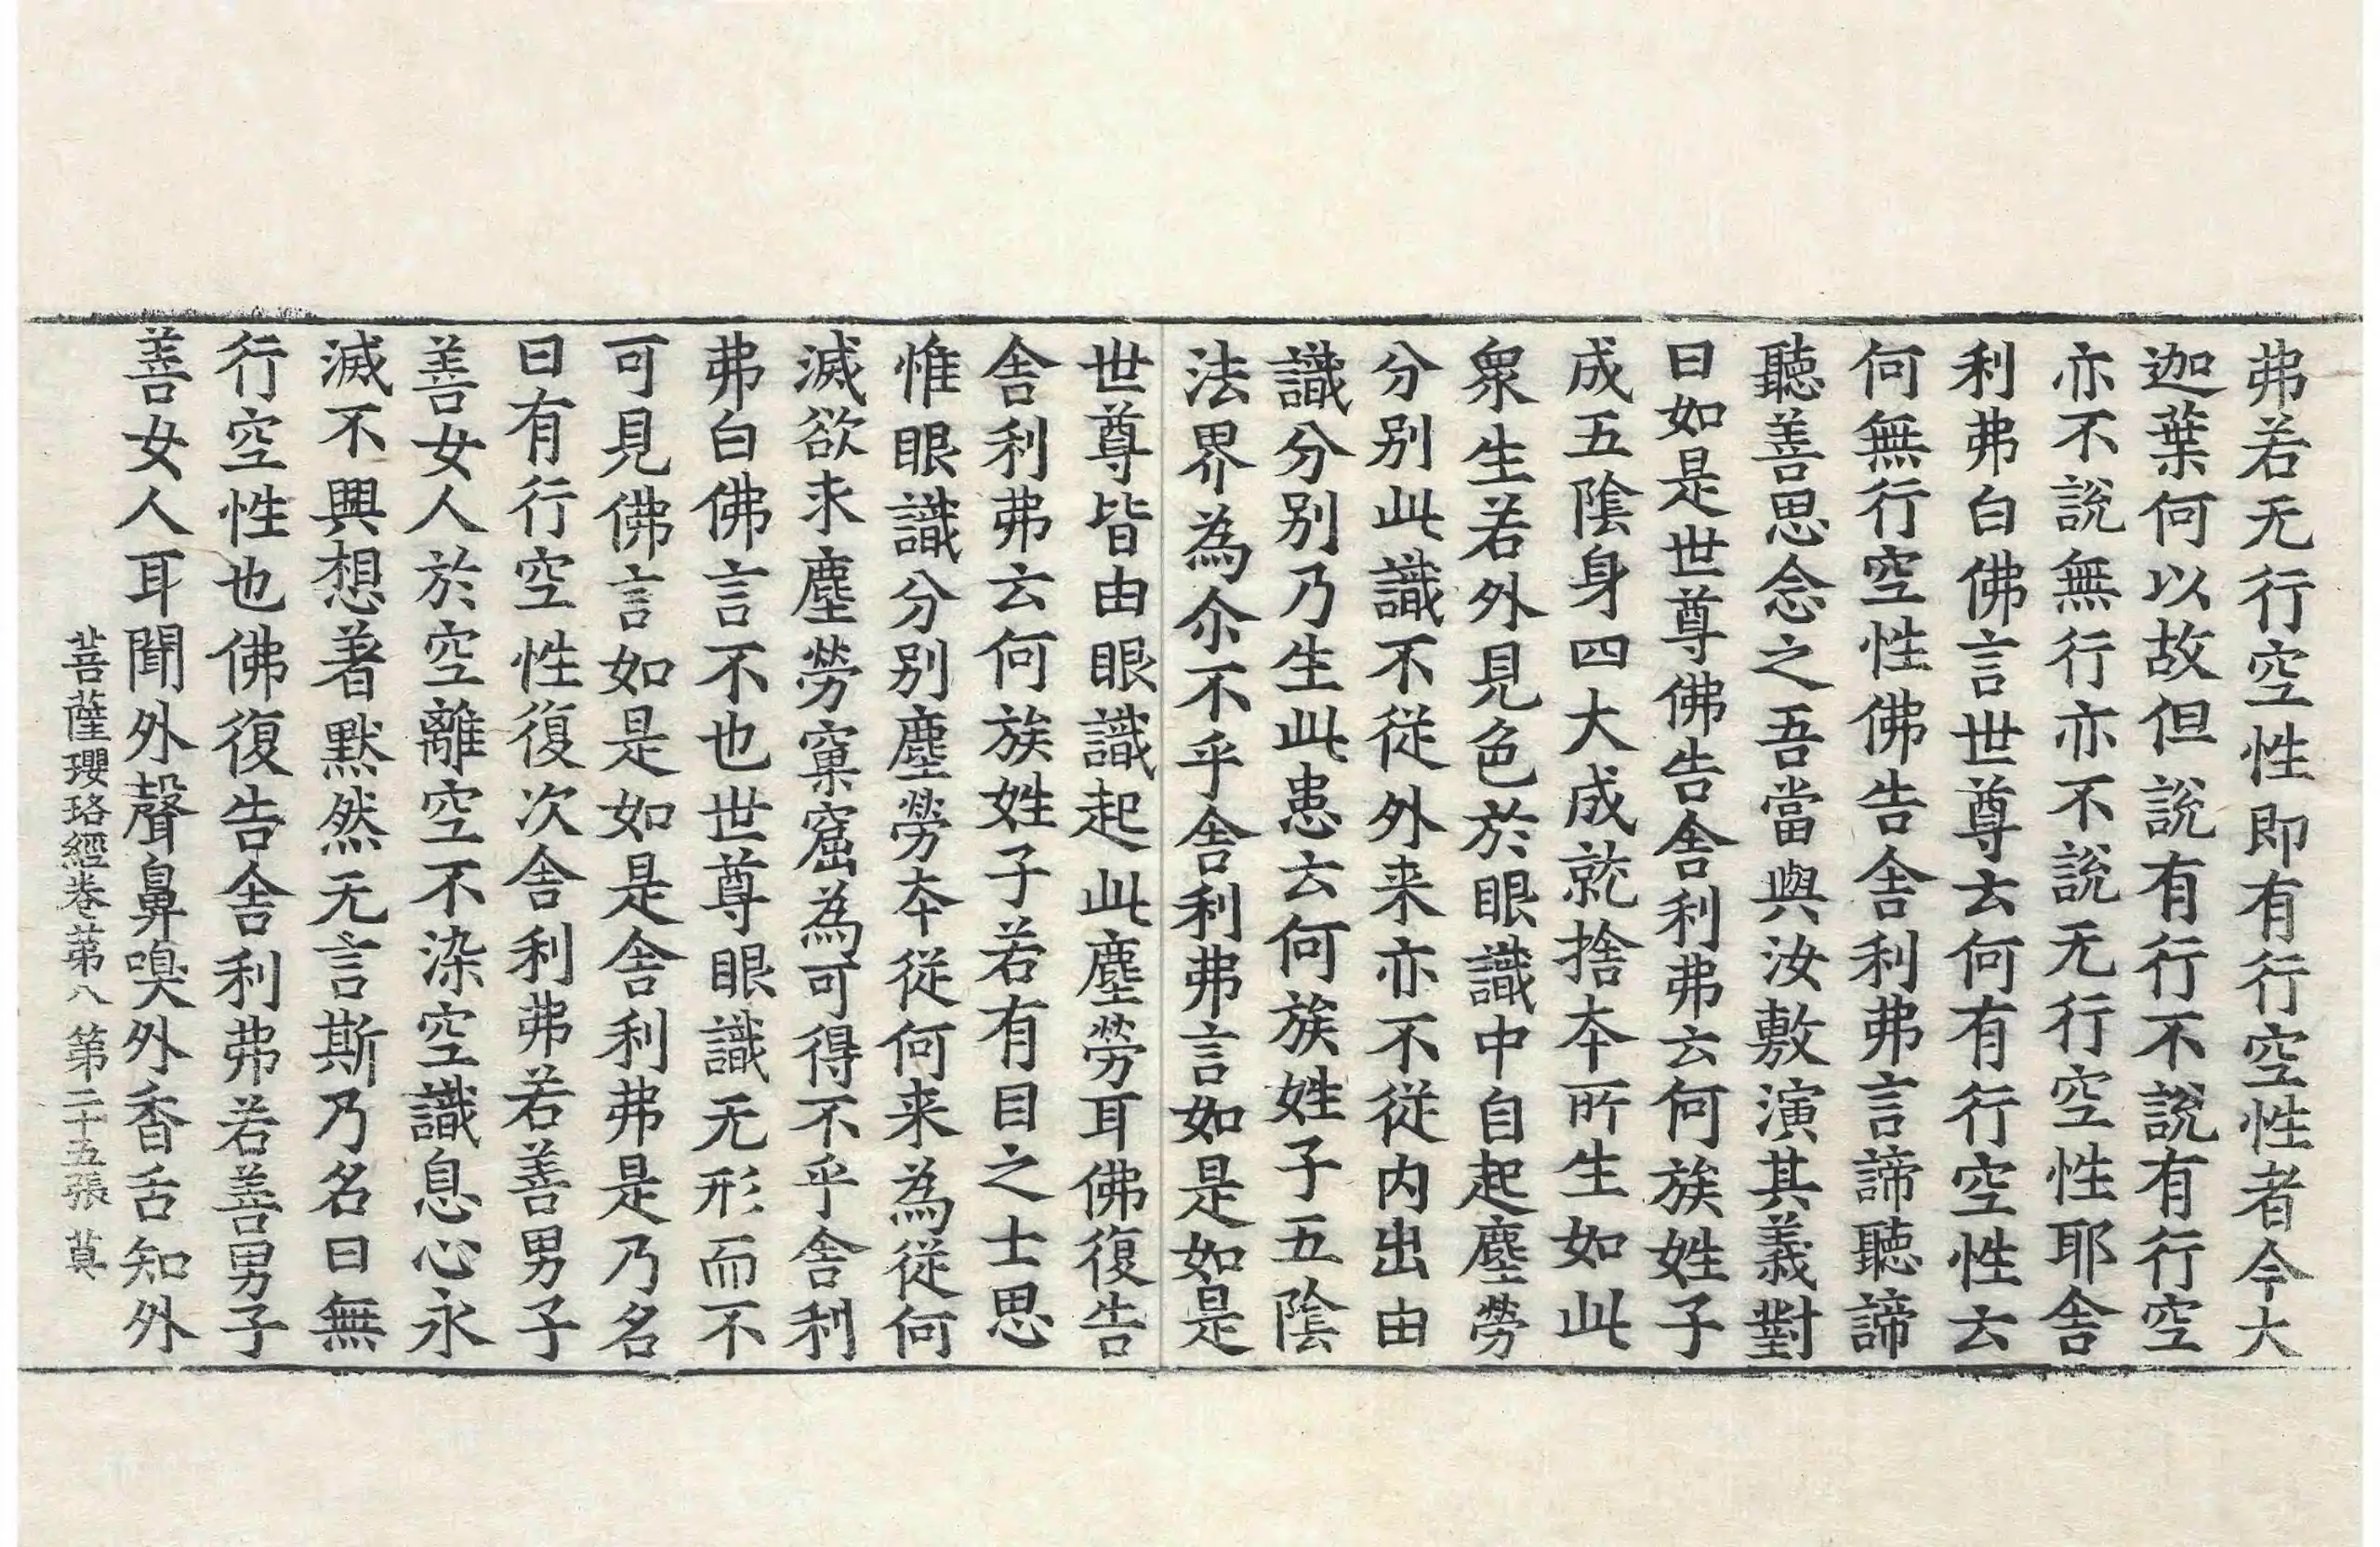 弗若无行空性即有行空性者今大
迦葉何以故但說有行不說有行空
亦不說無行亦不說无行空性耶舍
利弗白佛言世尊云何有行空性云
何無行空性佛告舍利弗言諦聽諦
聽善思念之吾當與汝敷演其義對
曰如是世尊佛告舍利弗云何族姓子
成五陰身四大成就捨夲所生如此
衆生若外見色於眼識中自起塵勞
分别此識不從外来亦不從内出由
識分别乃生此患云何族姓子五陰
法界為尒不乎舍利弗言如是如是
世尊皆由眼識起此塵勞耳佛復告
舍利弗云何族姓子若有目之士思
惟眼識分别塵勞夲從何来為從何
滅欲求塵勞窠窟為可得不乎舍利
弗白佛言不也世尊眼識无形而不
可見佛言如是如是舍利弗是乃名
曰有行空性復次舍利弗若善男子
善女人於空離空不染空識息心永
滅不興想著默然无言斯乃名曰無
行空性也佛復告舍利弗若善男子
善女人耳聞外聲鼻嗅外香舌知外
菩薩瓔珞經卷第八 第二十五張 莫